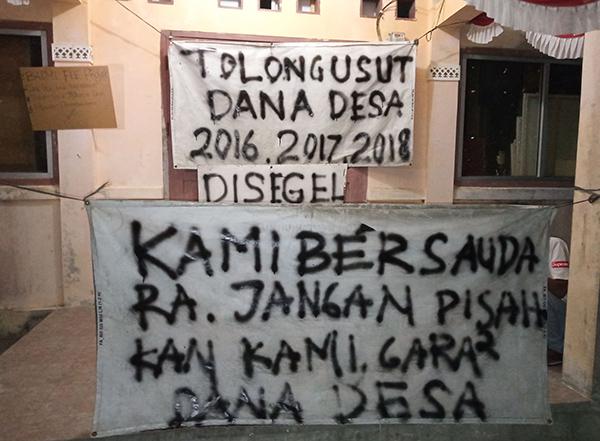 TOLONG USUT
DANA DESA
2016.2017.2018
DISEGEL
KAMI BERSAUDA
RA. JANGAN PISAH
KAN KAMI. GARA²
DANA DESA